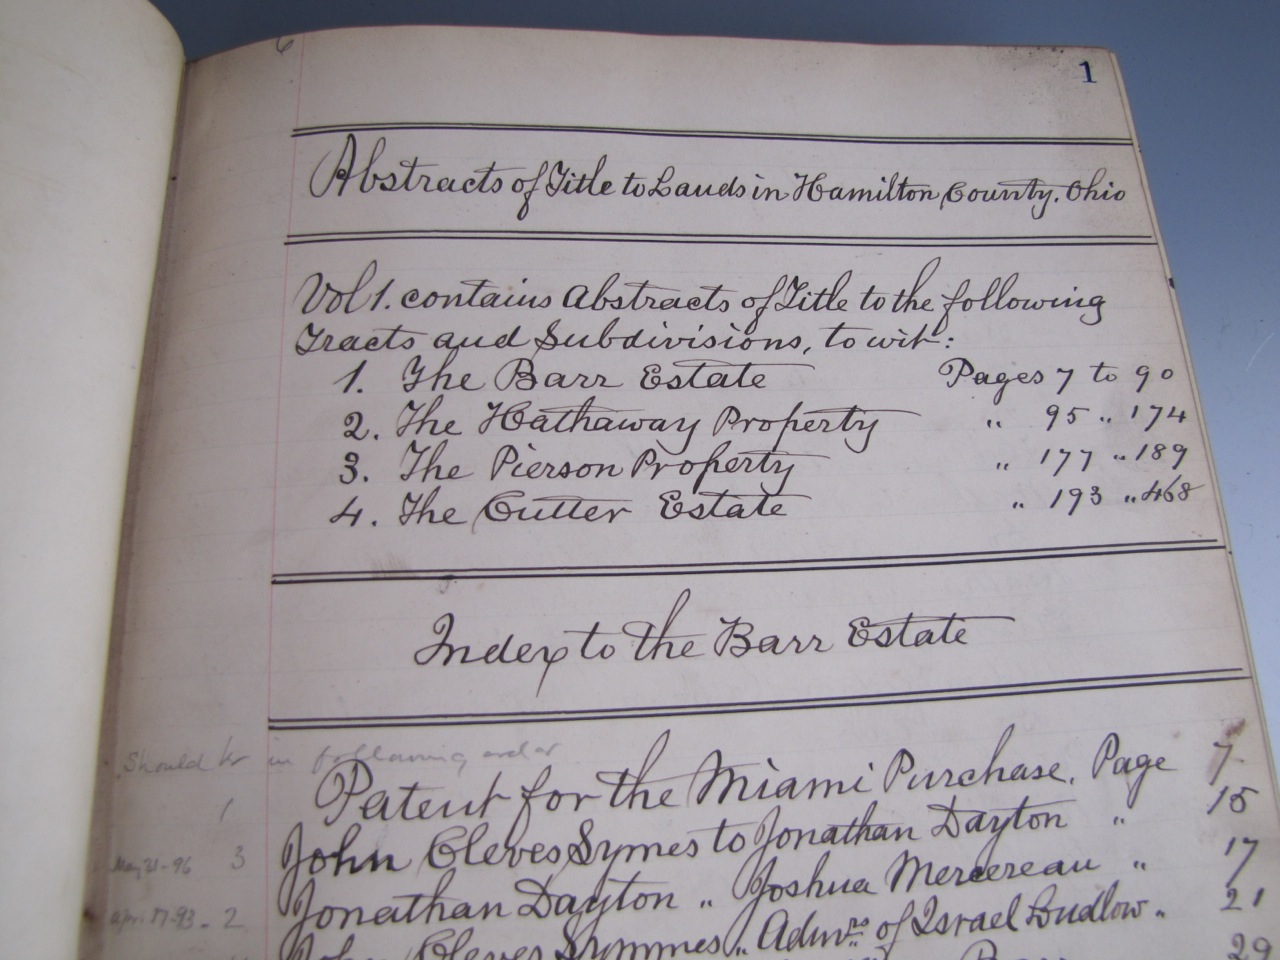 1
Abstracts of Title to Lands in Hamilton County, Ohio
Vol 1. contains Abstracts of Title to the following
Tracts and Subdivisions, to wit:
1. The Barr Estate Pages 7 to 90
2. The Hathaway Property " 95 " 174
3. The Pierson Property " 177 " 189
4. The Cutter Estate " 193 " 468
Index to the Barr Estate
Should be in following order
1 Patent for the Miami Purchase. Page 7
May 21-96 3 John Cleves Symes to Jonathan Dayton " 15
Apr. 17-93 - 2 Jonathan Dayton " Joshua Mercereau " 17
John Cleves Symmes " Admrs of Israel Ludlow " 21
Barr 29